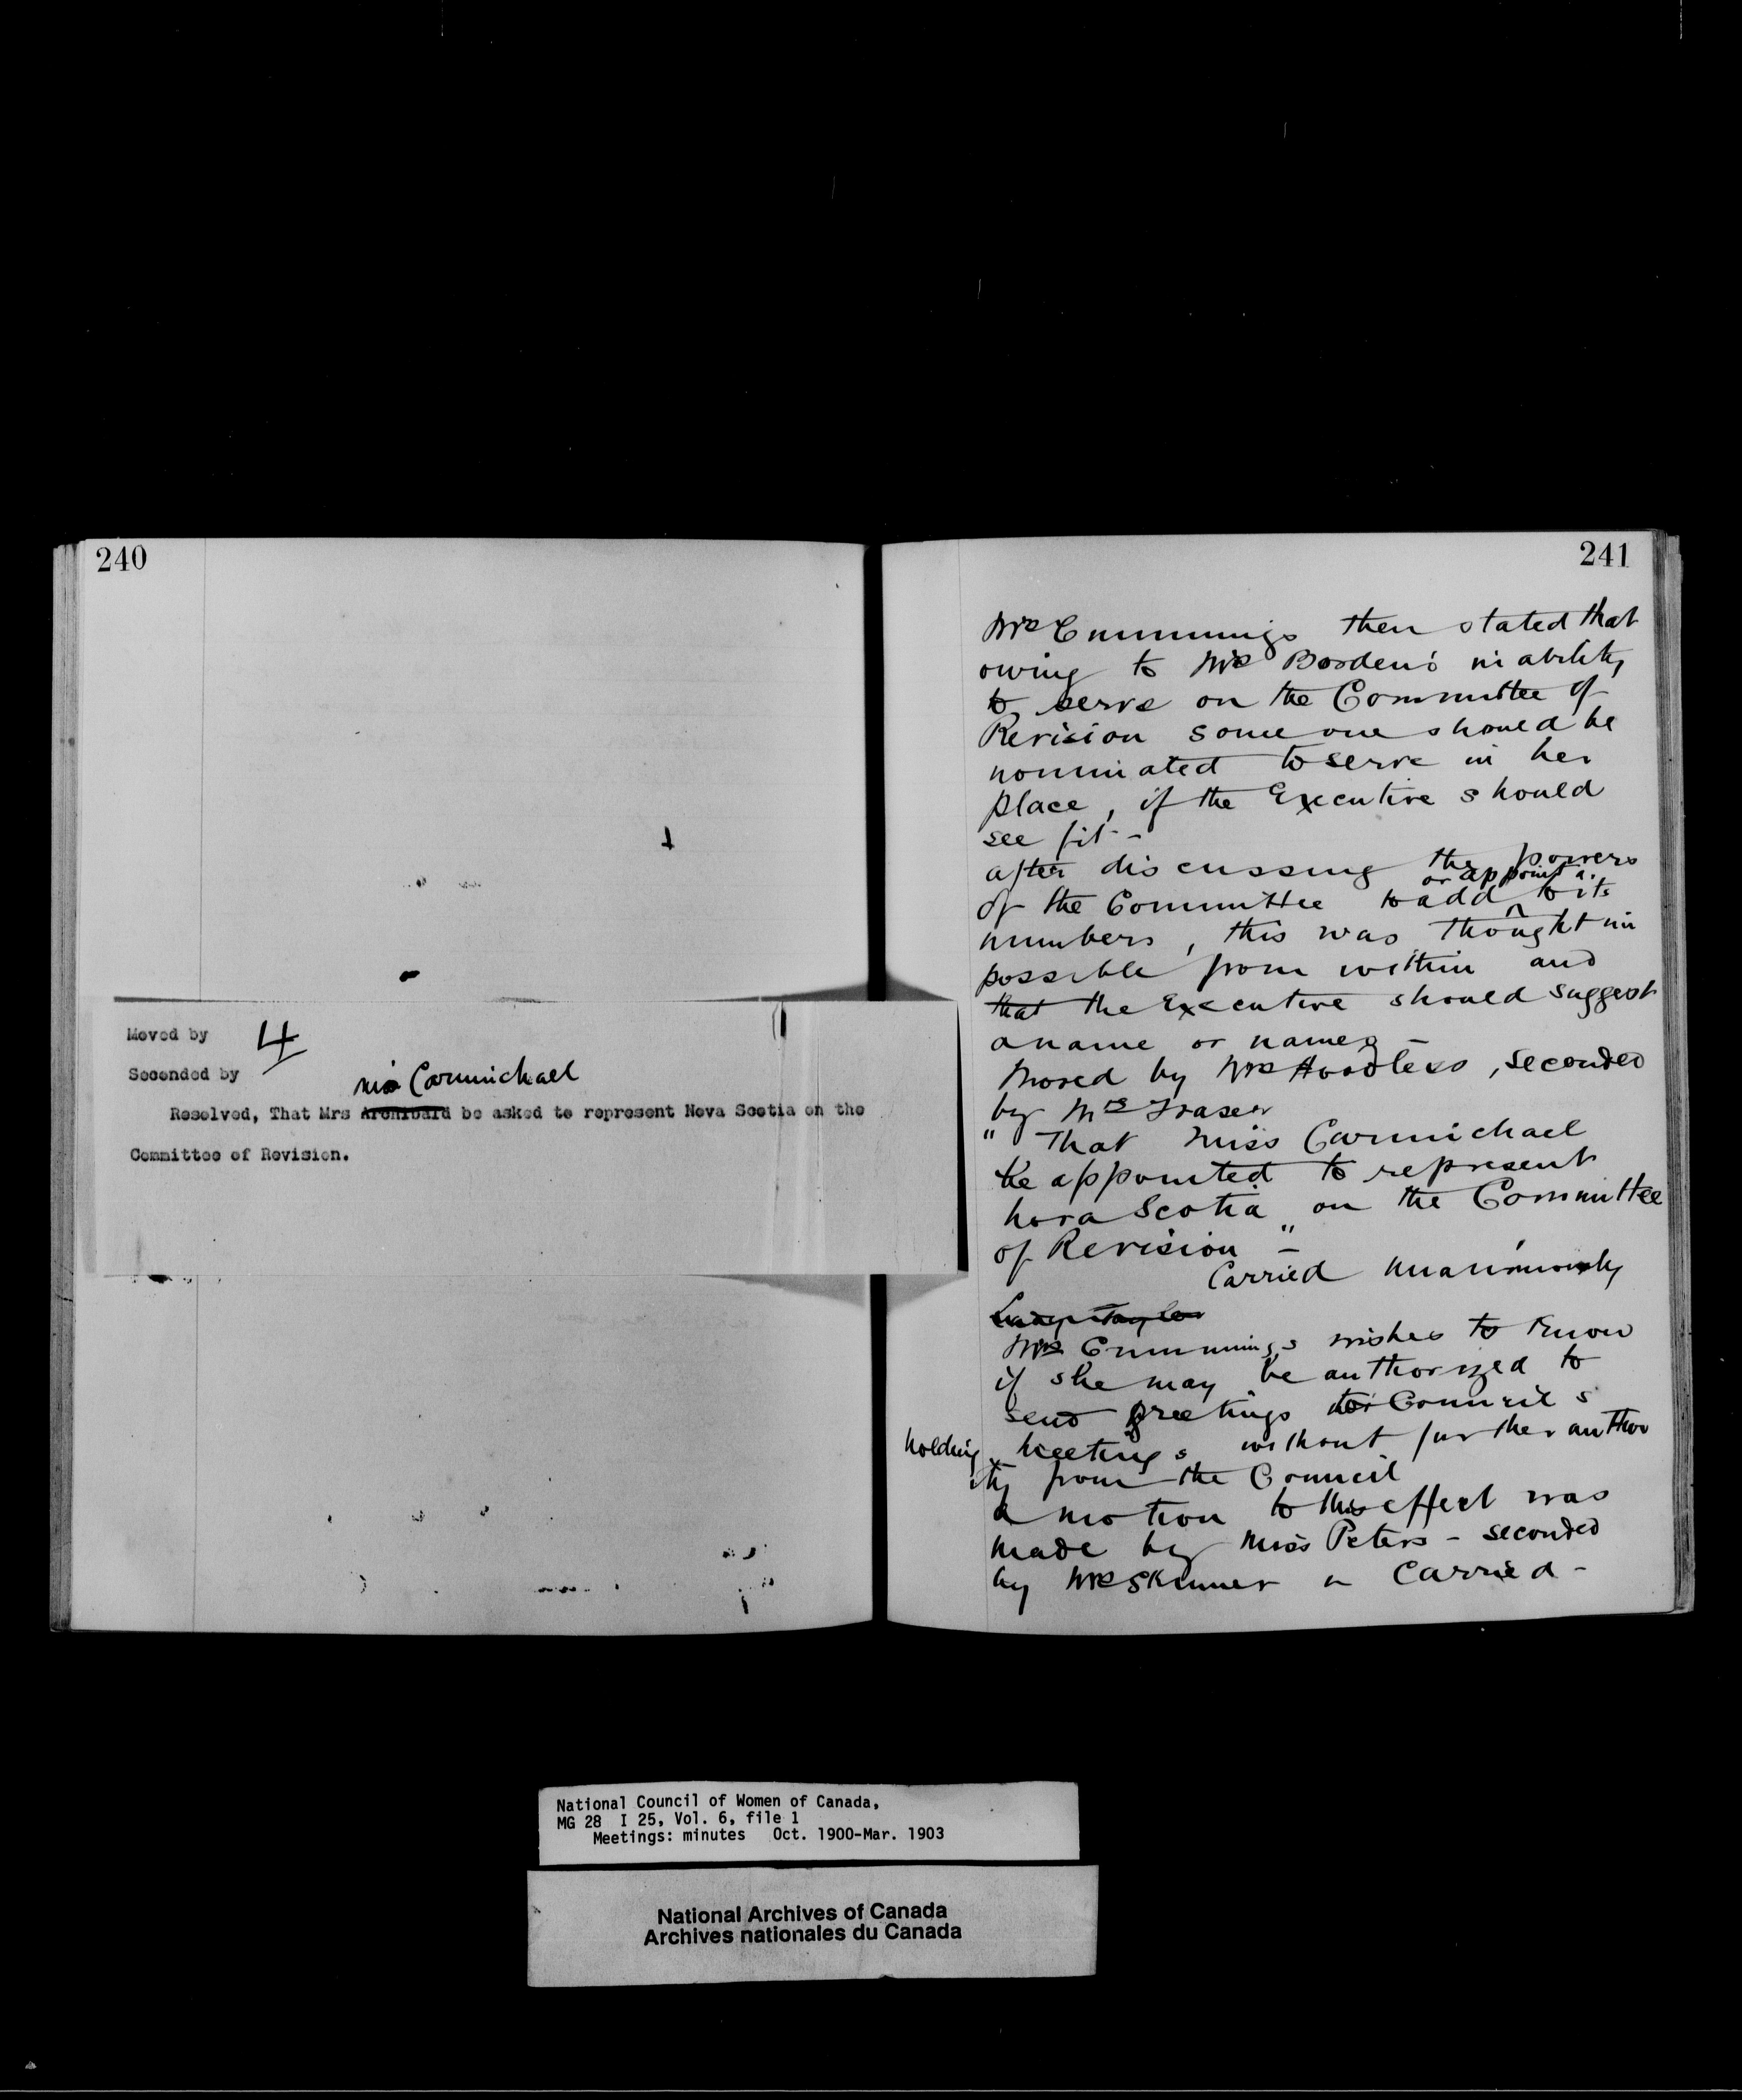 240
Moved by 4
Seconded by
Miss Carmichael
Resolved, That Mrs Archibald be asked to represent Nova Scotia on the
Committee of Revision.
241
Mrs Cummings then stated that
owing to Mrs Borden's inability
to serve on the Committee of
Revision some one should be
nominated to serve in her
place, if the Executive should
see fit -
after discussing the powers
or appoint a.
of the Committee to add ^ to its
numbers, this was thought im
possible from within and
that the Executive should suggest
a name or names -
Moved by Mrs Hoodless, seconded
by Mrs Fraser
" That Miss Carmichael
be appointed to represent
Nova Scotia on the Committee
of Revision " -
Carried unanimously
Lady Taylor
Mrs Cummings wishes to know
if she may be authorized to
send greetings to Councils
holding meetings without further author
ity from the Council
a motion to this effect was
made by Miss Peters - seconded
by Mrs Skinner & Carried -
National Council of Women of Canada,
MG 28 I 25, Vol. 6, file 1
Meetings: minutes Oct. 1900-Mar. 1903
National Archives of Canada
Archives nationales du Canada